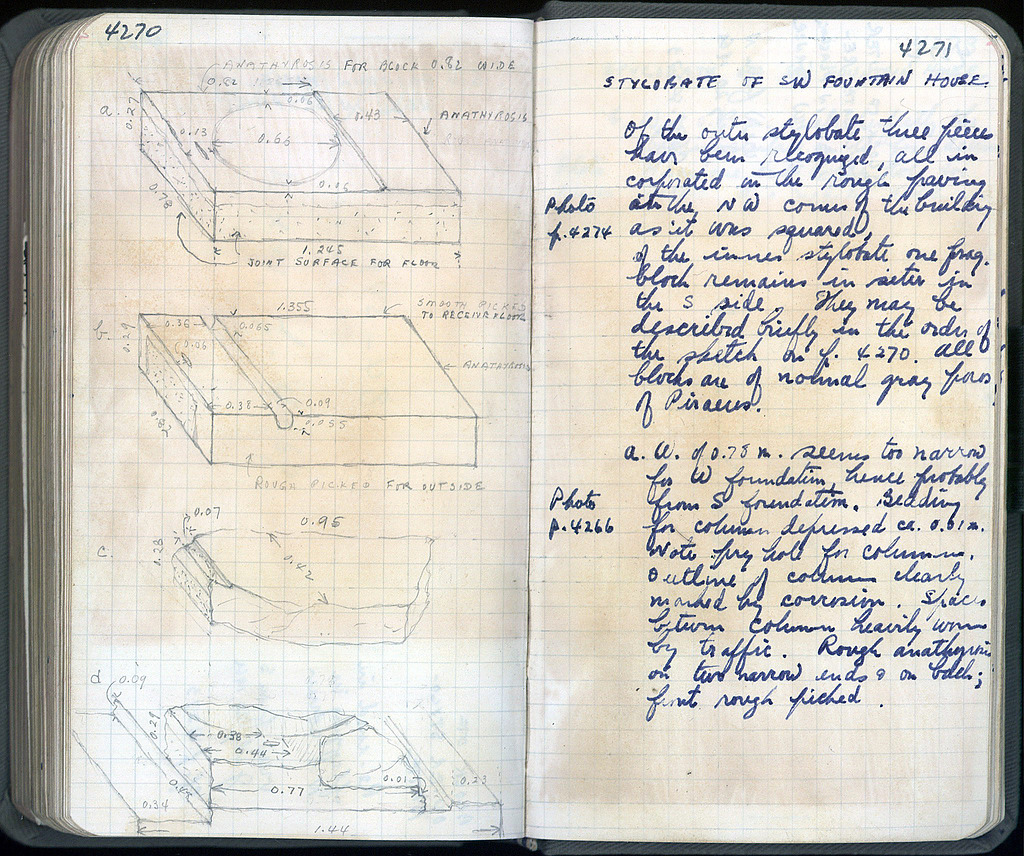 4270
ANATHYROSIS FOR BLOCK 0.82 WIDE
0.82
0.06
a.
0.27
0.43
ANATHYROSIS
0.13
0.66
0.06
0.78
1.245
JOINT SURFACE FOR FLOOR
1.355
SMOOTH PICKED
TO RECEIVE FLOOR
b.
0.29
0.36
0.065
0.06
ANATHYROSIS
0.38
0.09
0.055
0.82
ROUGH PICKED FOR OUTSIDE
0.07
0.95
c.
0.28
0.42
d
0.09
0.29
0.38
0.44
0.01
0.23
0.77
0.34
1.44
4271
STYLOBATE OF SW FOUNTAIN HOUSE.
Of the outer stylobate three pieces
have been recognized, all in
corporated in the rough paving
Photo
at the NW corner of the building
p. 4274
as it was squared,
of the inner stylobate one frag.
block remains in situ in
the S side. They may be
described briefly in the order of
the sketch on p. 4270. All
blocks are of normal gray poros
of Piraeus.
a. W. of 0.78 m. seems too narrow
for W foundation, hence probably
Photo
from S foundation. Bedding
p. 4266
for column depressed ca. 0.01 m.
Note pry hole for column.
Outline of column clearly
marked by corrosion. Spaces
between column heavily worn
by traffic. Rough anathyrosis
on two narrow ends & on back;
front rough picked.